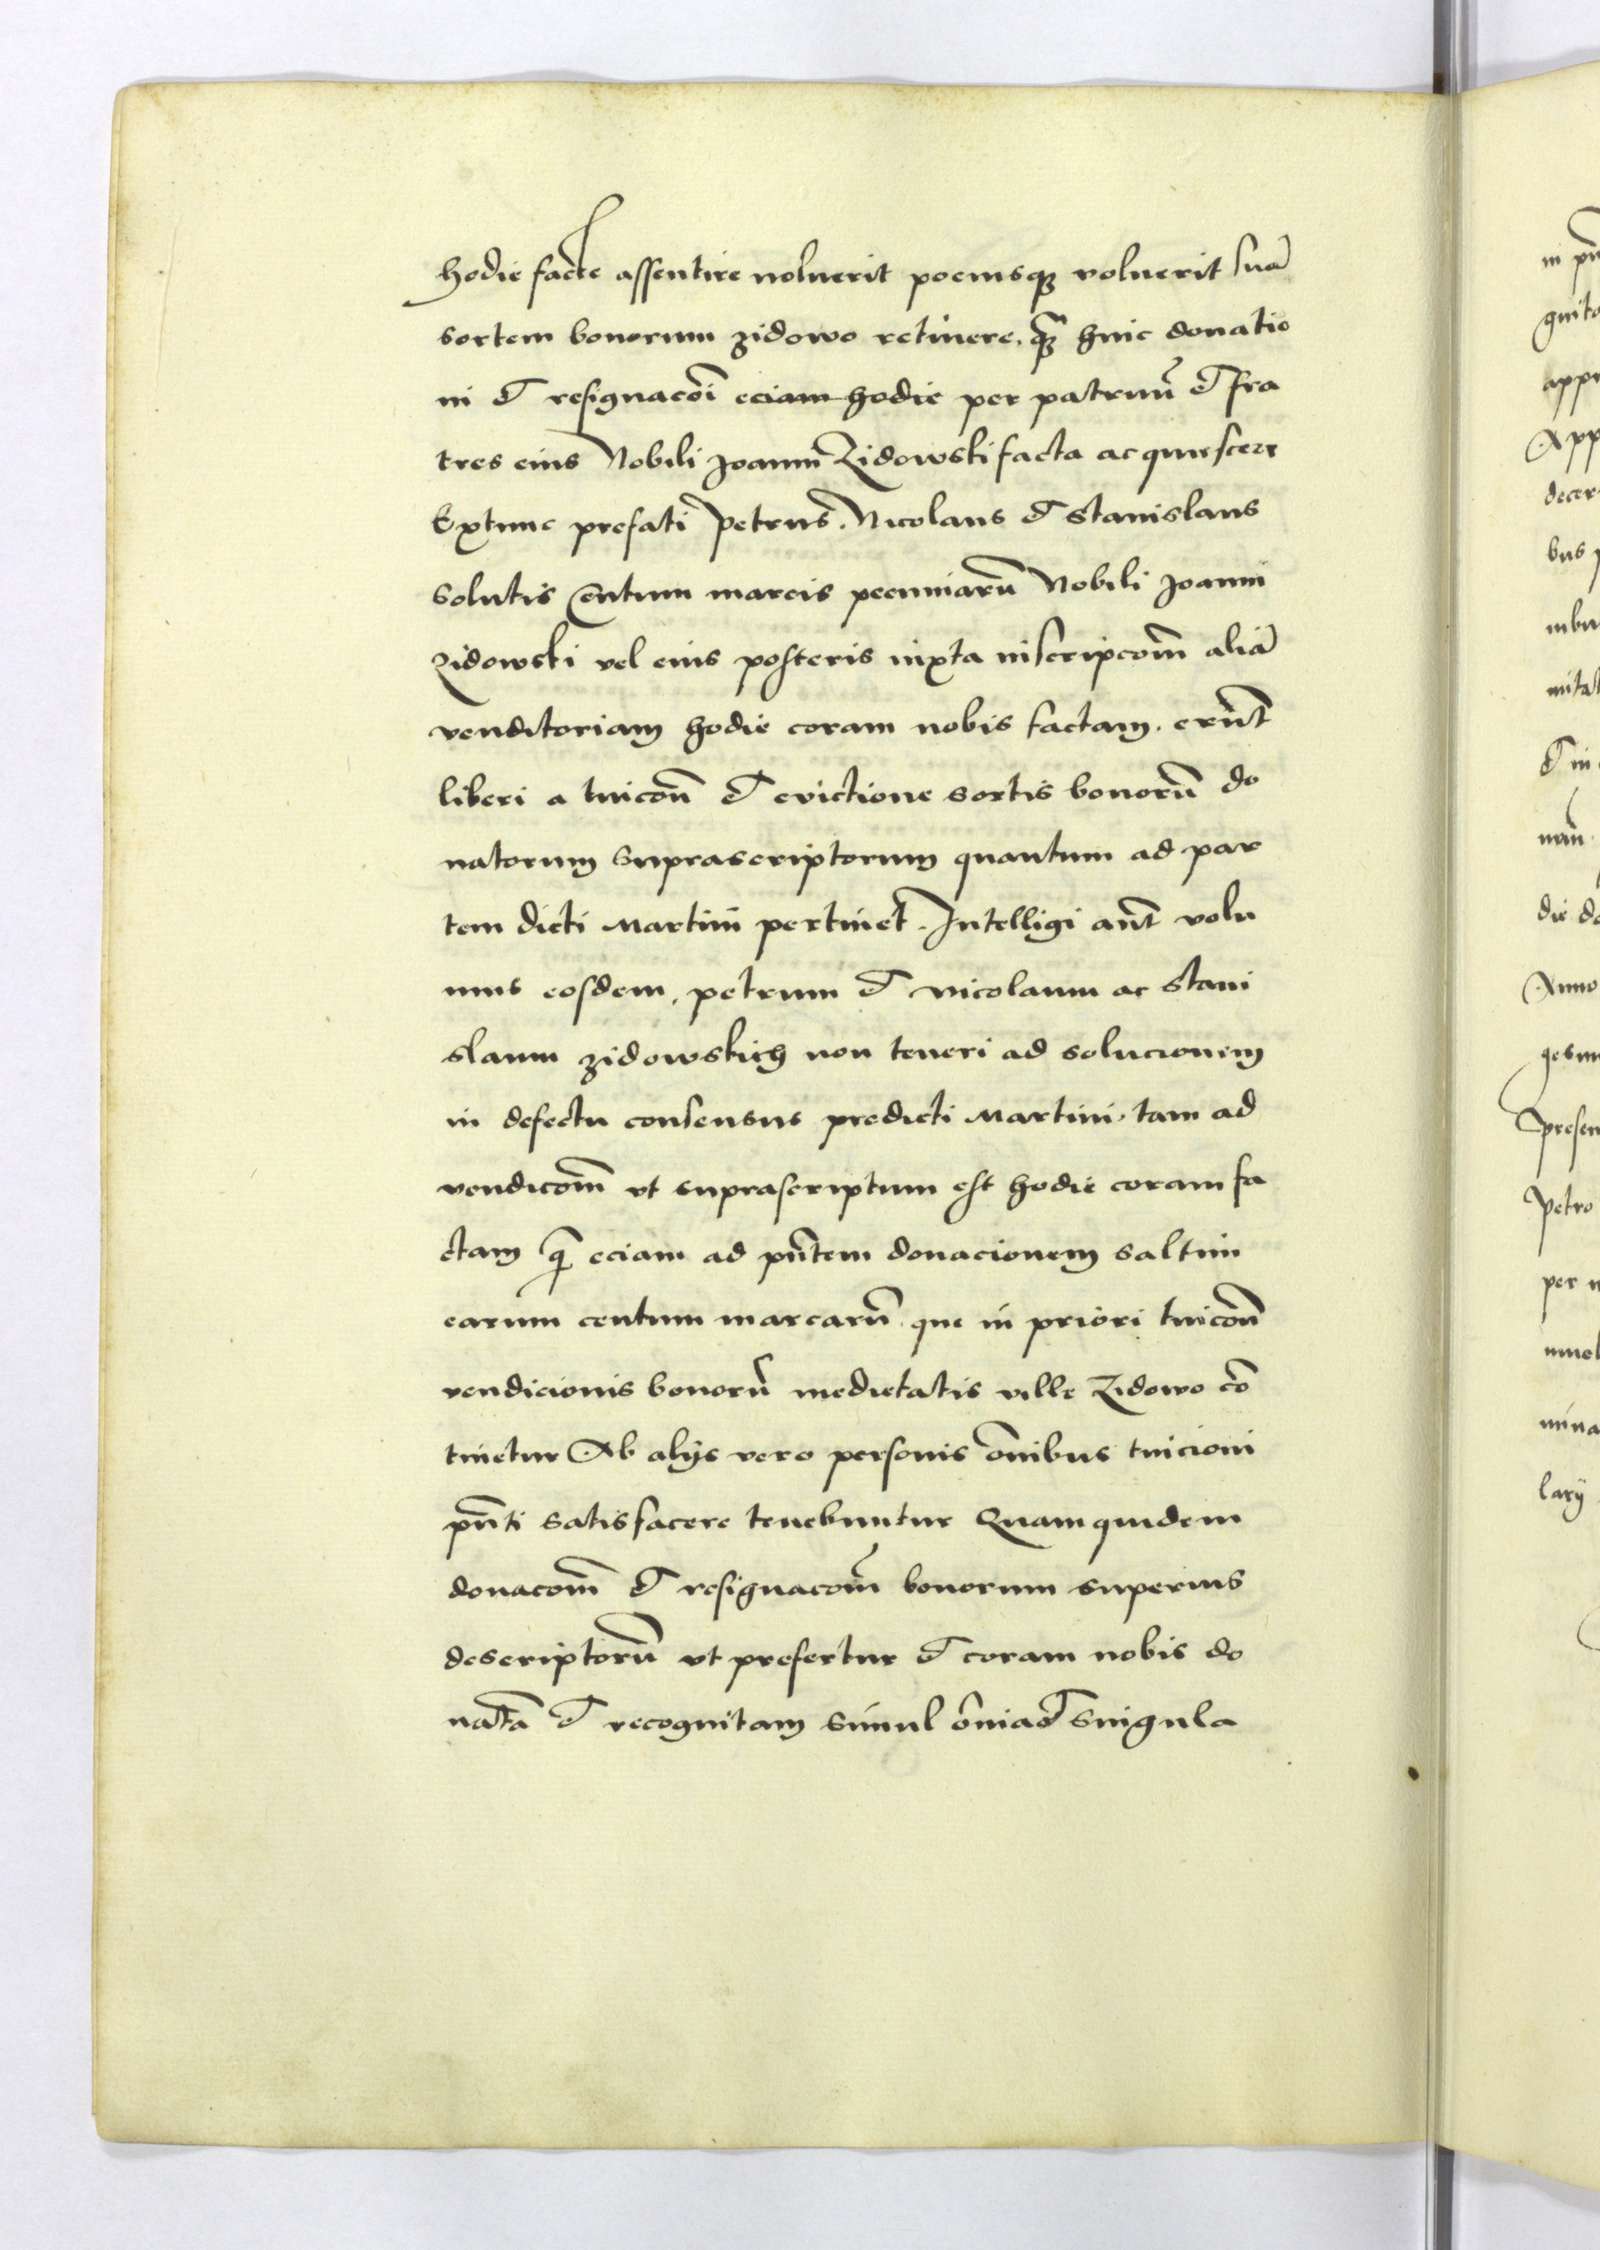 hodie facte assentire noluerit pocinsqꝫ voluerit suā
sortem bonorum zidowo retinere, qꝫ̄ huic donatio
ni et resignacōi eciam hodie per patruū et fra
tres eius Nobili Joanni Zidowski facta acquiescere
Extunc prefati Petrus, Nicolaus et Stanislaus
solutis Centum marcis pecuniarū Nobili Joanni
Zidowski vel eius posteris iuxta inscripcōm aliā
venditoriam hodie coram nobis factam, erūt
liberi a tuicōn et evictione sortis bonorū do
natorum suprascriptorum quantum ad par
tem dicti Martini pertinet. Intelligi aūt volu
mus eosdem, petrum et Nicolaum ac Stani
slaum zidowskich non teneri ad solucionem
in defectu consensus predicti Martini, tam ad
vendicōm vt suprascriptum est hodie coram fa
ctam q̄ eciam ad pn̄tem donacionem saltim
earum centum marcarū que in priori tuicōn
vendicionis bonorū medietatis ville Zidowo cō
tinetur Ab alijs vero personis om̄ibus tuicioni
pn̄ti satisfacere tenebuntur Quamquidem
donacōm et resignacōm bonorum superius
descriptorū vt prefertur et coram nobis do
natā et recognitam simul om̄ia et singula